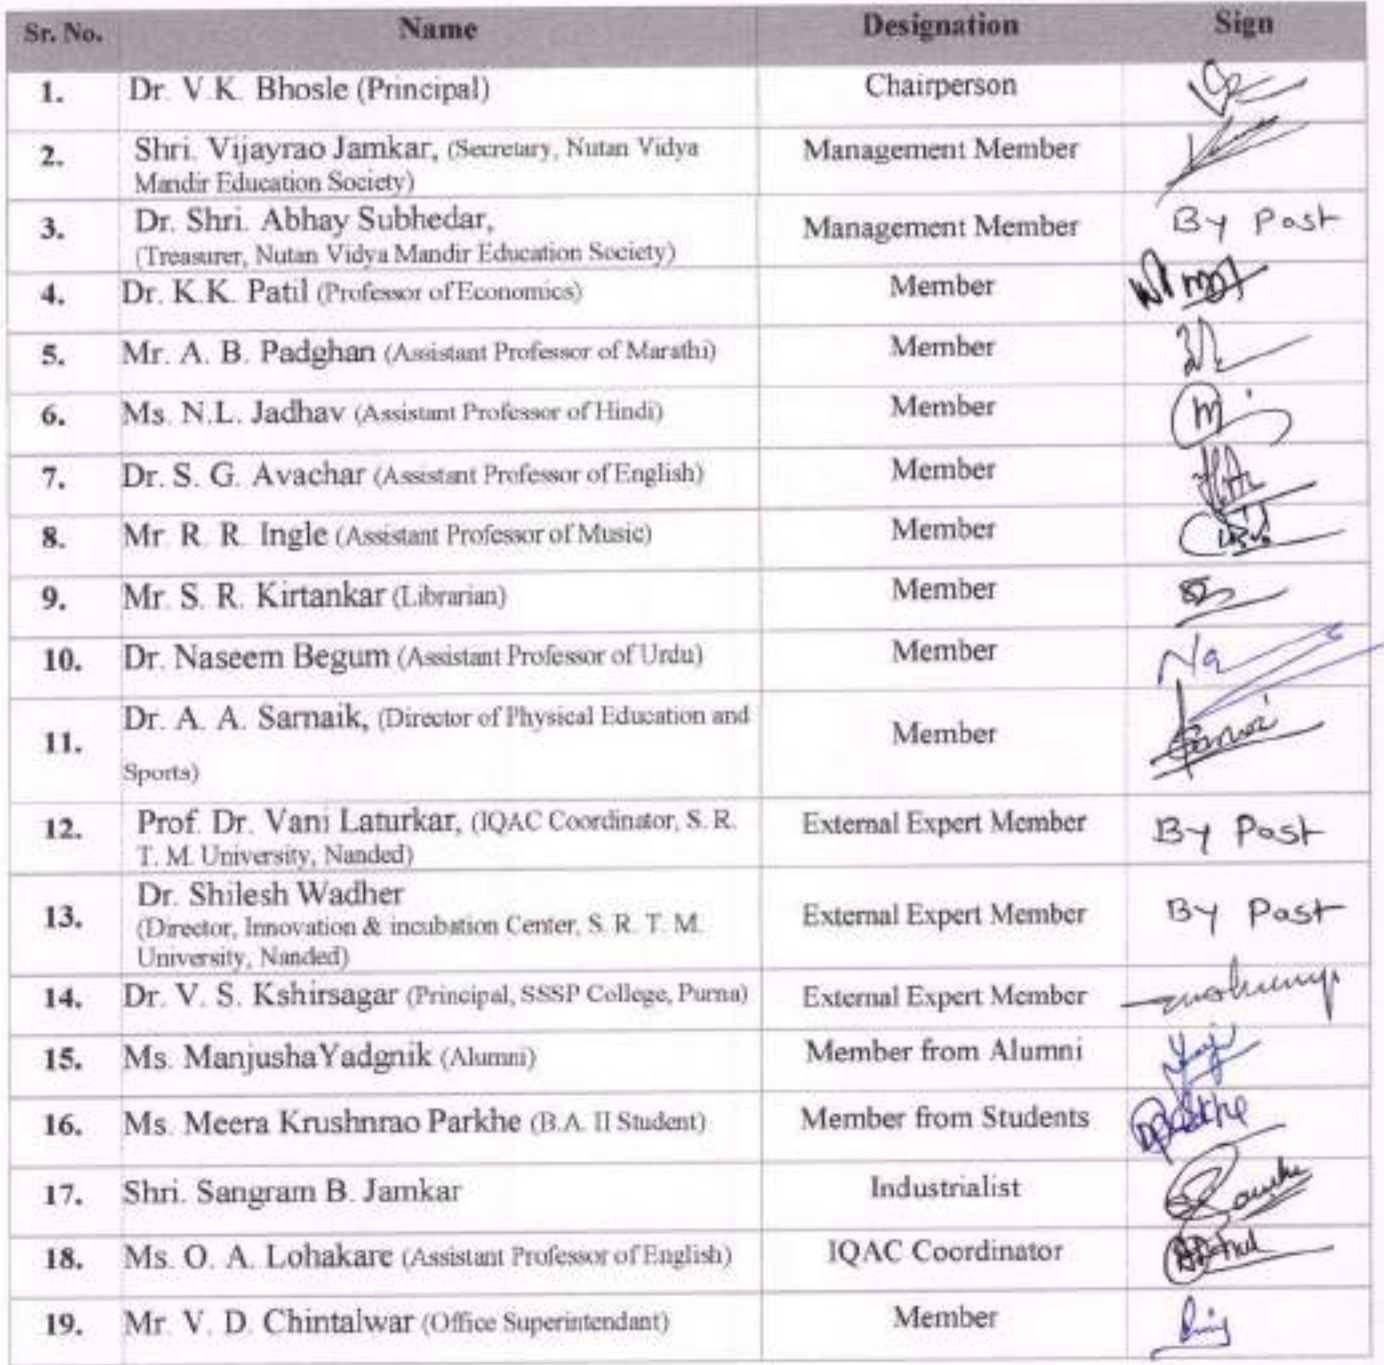 Sr. No. Name Designation Sign
1. Dr. V.K. Bhosle (Principal) Chairperson
2. Shri. Vijayrao Jamkar, (Secretary, Nutan Vidya Management Member
Mandir Education Society)
3. Dr. Shri. Abhay Subhedar, Management Member By Post
(Treasurer, Nutan Vidya Mandir Education Society)
4. Dr. K.K. Patil (Professor of Economics) Member
5. Mr. A. B. Padghan (Assistant Professor of Marathi) Member
6. Ms. N.L. Jadhav (Assistant Professor of Hindi) Member
7. Dr. S. G. Avachar (Assistant Professor of English) Member
8. Mr. R. R. Ingle (Assistant Professor of Music) Member
9. Mr. S. R. Kirtankar (Librarian) Member
10. Dr. Naseem Begum (Assistant Professor of Urdu) Member
11. Dr. A. A. Sarnaik, (Director of Physical Education and Member
Sports)
12. Prof. Dr. Vani Laturkar, (IQAC Coordinator, S. R. External Expert Member By Post
T. M. University, Nanded)
13. Dr. Shilesh Wadher External Expert Member By Post
(Director, Innovation & incubation Center, S. R. T. M.
University, Nanded)
14. Dr. V. S. Kshirsagar (Principal, SSSP College, Purna) External Expert Member
15. Ms. ManjushaYadgnik (Alumni) Member from Alumni
16. Ms. Meera Krushnrao Parkhe (B.A. II Student) Member from Students
17. Shri. Sangram B. Jamkar Industrialist
18. Ms. O. A. Lohakare (Assistant Professor of English) IQAC Coordinator
19. Mr. V. D. Chintalwar (Office Superintendant) Member